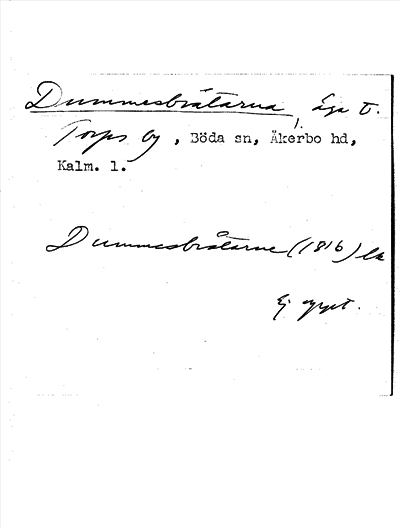 Dummesbråtarna, äga t.
Torps by, Böda sn, Åkerbo hd,
Kalm. l.
Dummesbråtarne (1816) lk
Ej uppt.